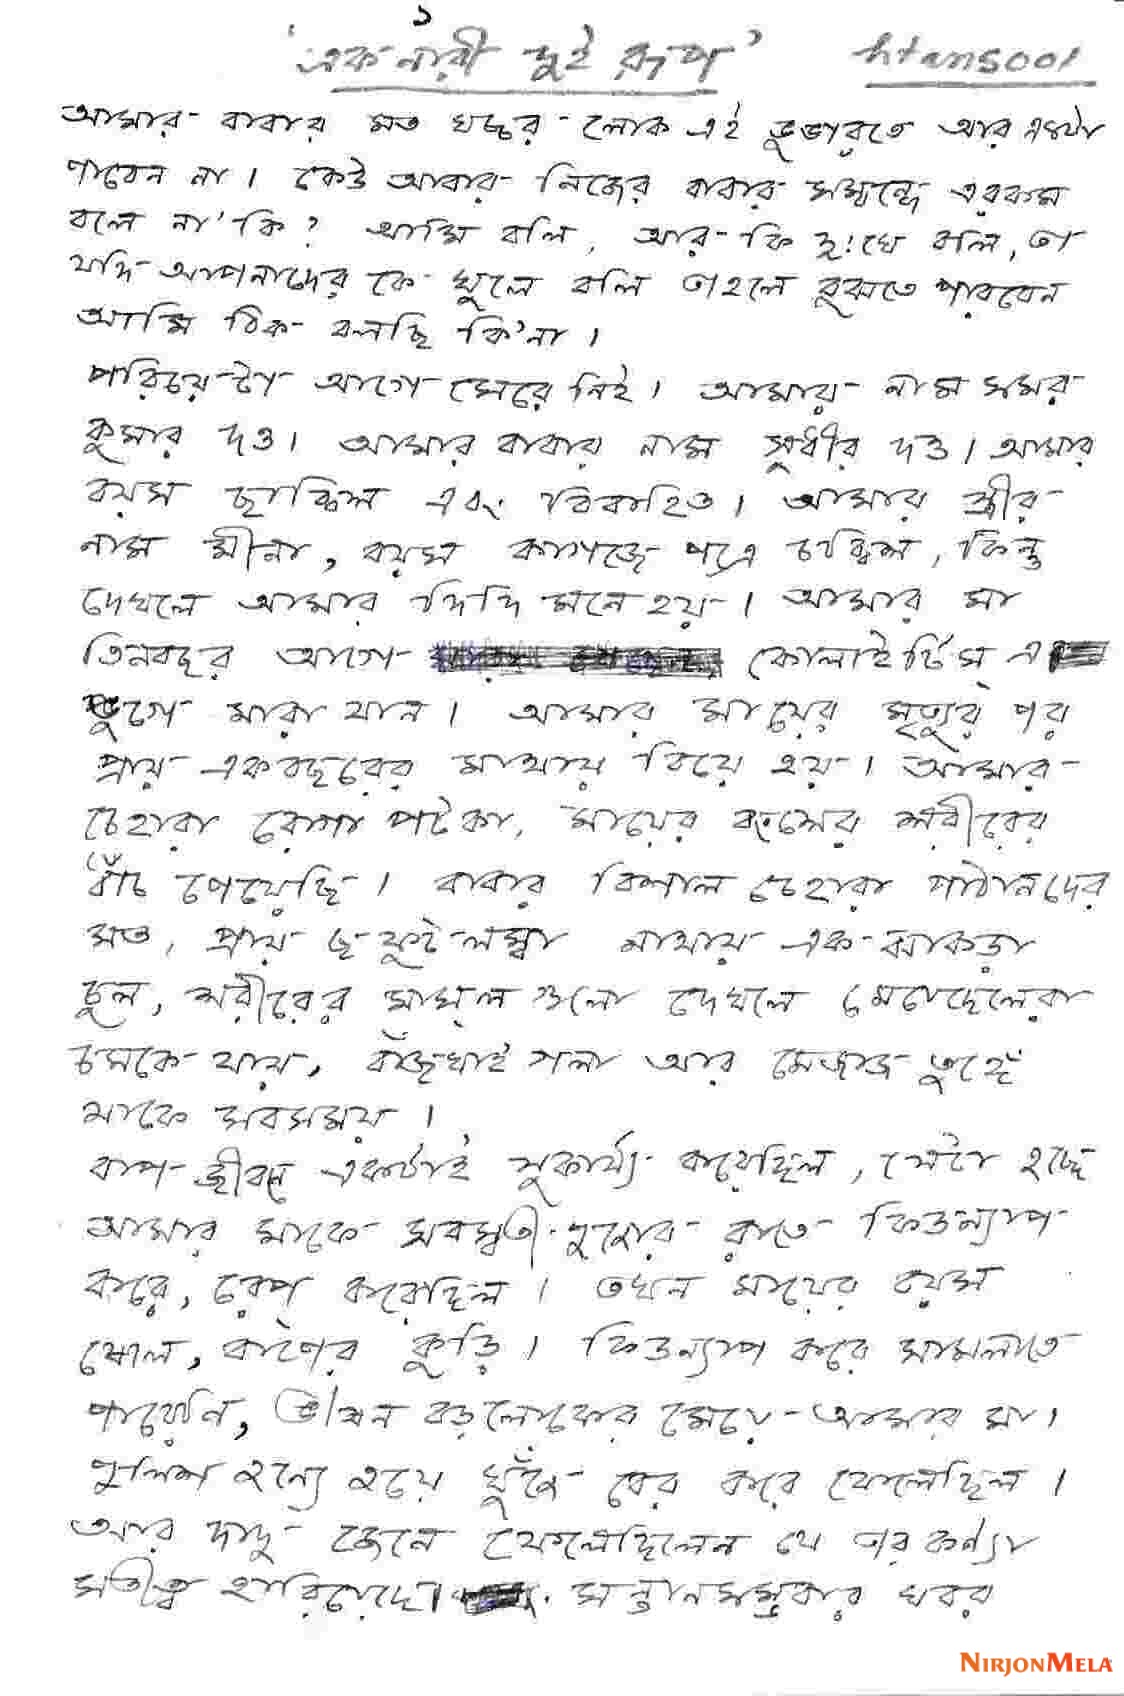 ১
'এক নারী দুই রূপ' htans001
আমার বাবার মত খচ্চর লোক এই ভূভারতে আর একটা
পাবেন না। কেউ আবার নিজের বাবার সম্মন্ধে এরকম
বলে না'কি? আমি বলি, আর কি দুঃখে বলি, তা
যদি আপনাদের কে খুলে বলি তাহলে বুঝতে পারবেন
আমি ঠিক বলছি কি'না।
পরিচয়টা আগে সেরে নিই। আমার নাম সমর
কুমার দত্ত। আমার বাবার নাম সুধীর দত্ত। আমার
বয়স ছাব্বিশ এবং বিবাহিত। আমার স্ত্রীর
নাম মীনা, বয়স কাগজে পত্রে চব্বিশ, কিন্তু
দেখলে আমার দিদি মনে হয়। আমার মা
তিনবছর আগে কোলাইটিস্ এ
ভুগে মারা যান। আমার মায়ের মৃত্যুর পর
প্রায় একবছরের মাথায় বিয়ে হয়। আমার
চেহারা রোগা পটকা, মায়ের বংশের শরীরের
ধাঁচ পেয়েছি। বাবার বিশাল চেহারা পাঠানদের
মত, প্রায় ছ ফুট লম্বা মাথায় এক ঝাকড়া
চুল, শরীরের মাসল গুলো দেখলে মেয়েছেলেরা
চমকে যায়, বাঁজখাই গলা আর মেজাজ তুঙ্গে
থাকে সবসময়।
বাপ জীবনে একটাই সুকার্য্য করেছিল, সেটা হচ্ছে
আমার মাকে সরস্বতী পুজোর রাতে কিডন্যাপ
করে, রেপ করেছিল। তখন মায়ের বয়স
ষোল, বাপের কুড়ি। কিডন্যাপ করে সামলাতে
পারেনি, ভীষন বড়লোকের মেয়ে আমার মা।
পুলিশ হন্যে হয়ে খুঁজে বের করে ফেলেছিল।
আর দাদু জেনে ফেলেছিলেন যে তার কন্যা
সতীত্ব হারিয়েছে। সন্তানসম্ভবার খবর
NIRJONMELA